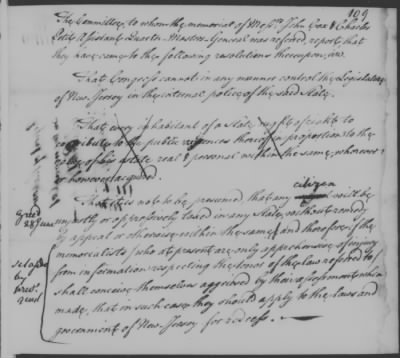 109
The Committee, to whom the memorial of Mess.rs John Cox & Charles
Pettit Assistant Quarter Masters General was referred, report, that
they have come to the following resolutions thereupon, viz.
That Congress cannot in any manner control the Legislature
of New Jersey in the internal police of the said State.
That every inhabitant of a State ought of right to
contribute to the public exigences thereof in proportion to the
value of his estate real & personal within the same, wherever
or however acquired.
That it is not to be presumed, that any citizen will be
unjustly or oppressively taxed in any State, without remedy
by appeal or otherwise within the same; and therefore if the
memorialists (who at present are only apprehensive of injury
from information respecting the tenor of the law referred to)
shall conceive themselves aggrieved by their assessment when
made, that in such case they should apply to the laws and
government of New Jersey for redress.
by